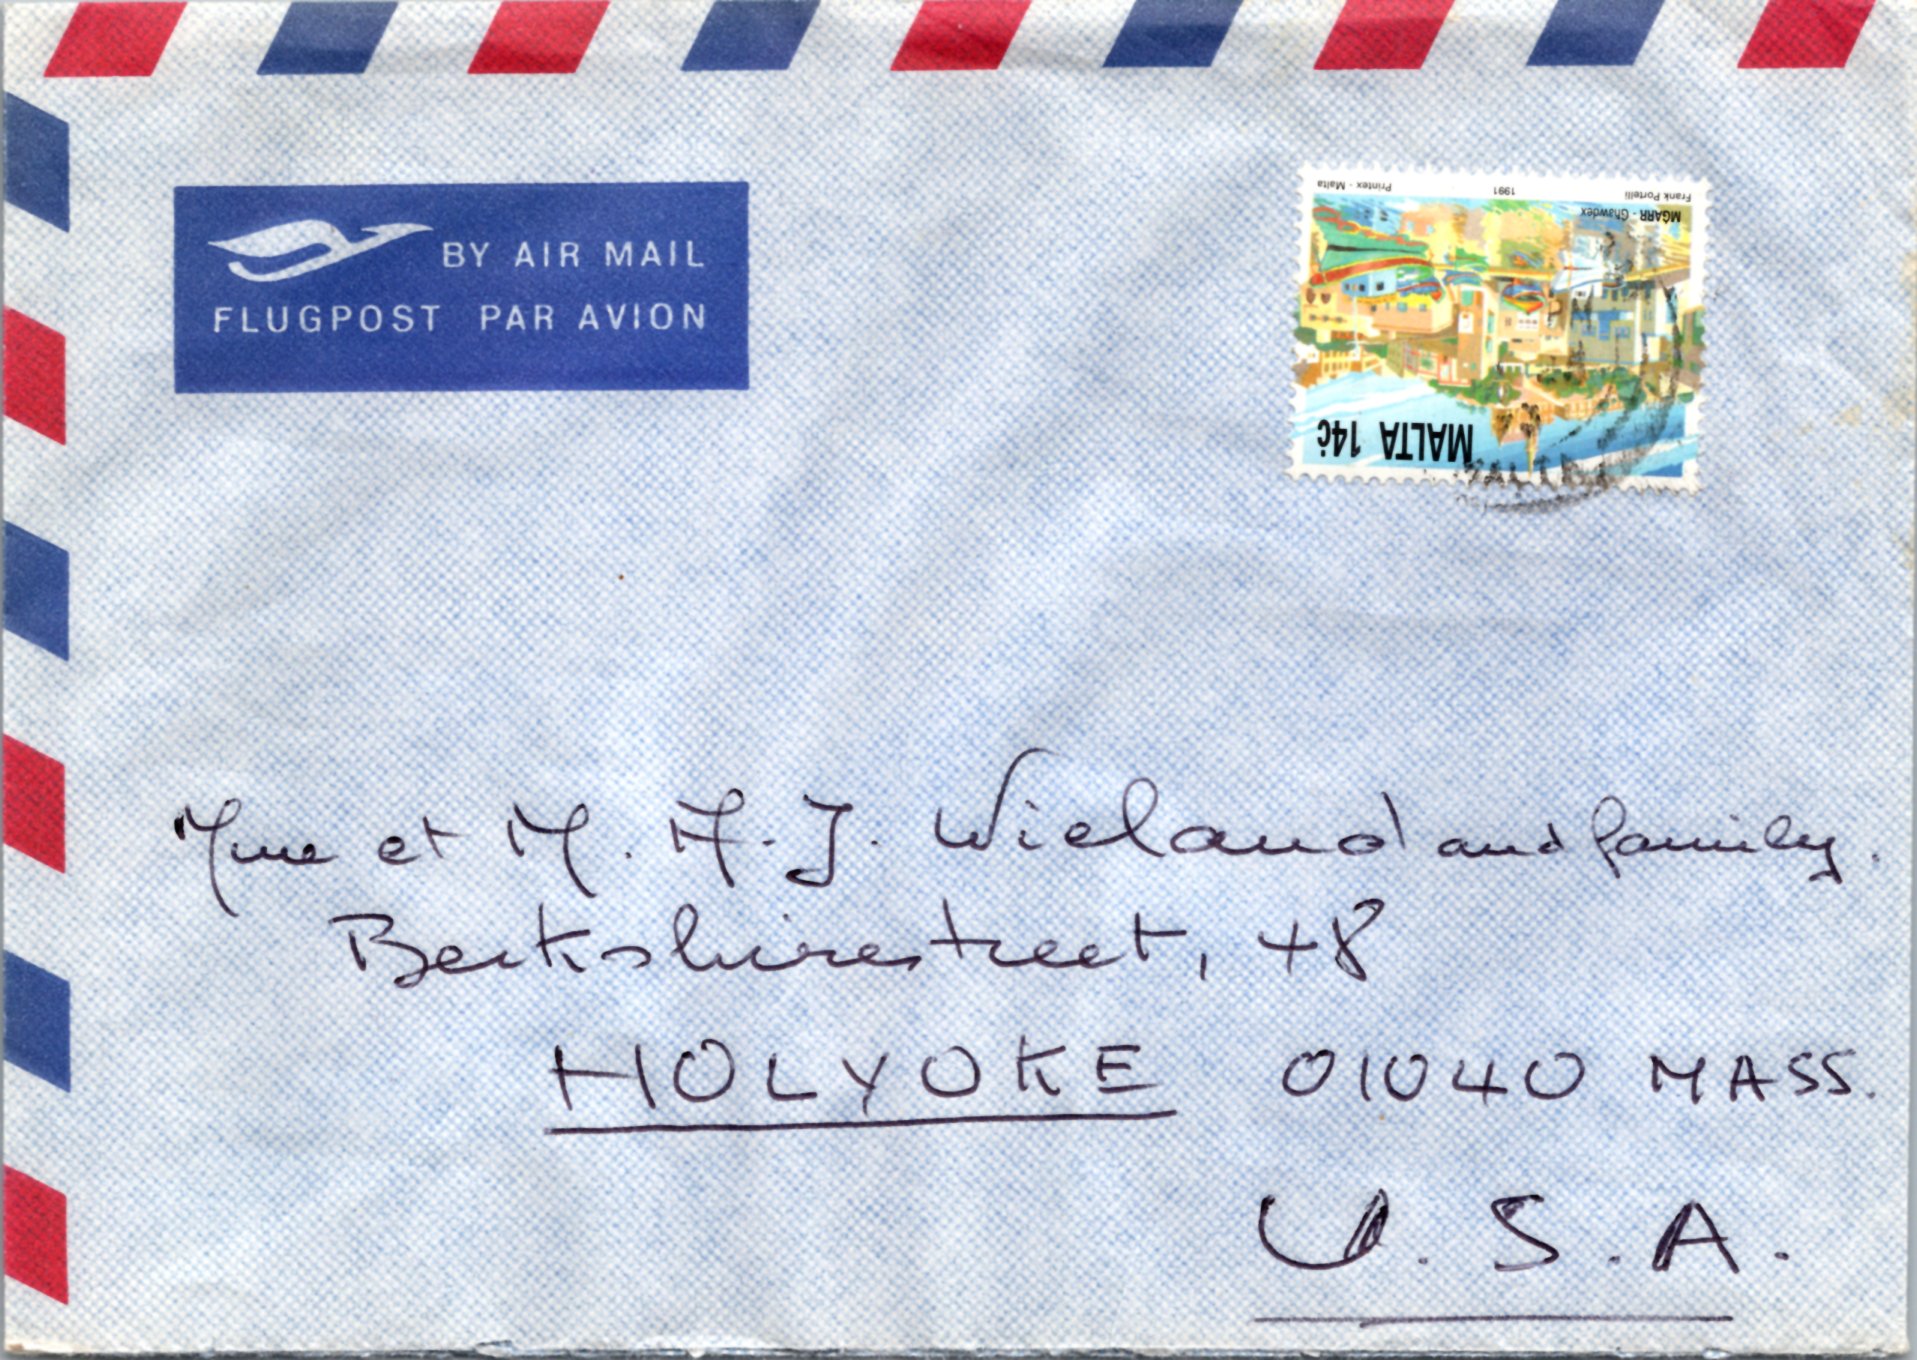 BY AIR MAIL
FLUGPOST PAR AVION
MALTA 14ċ
MĠARR - Għawdex
Frank Portelli 1991 Printex - Malta
Mme et M. A.J. Wieland and family.
Berkshirestreet, 48
HOLYOKE 01040 MASS.
U.S.A.